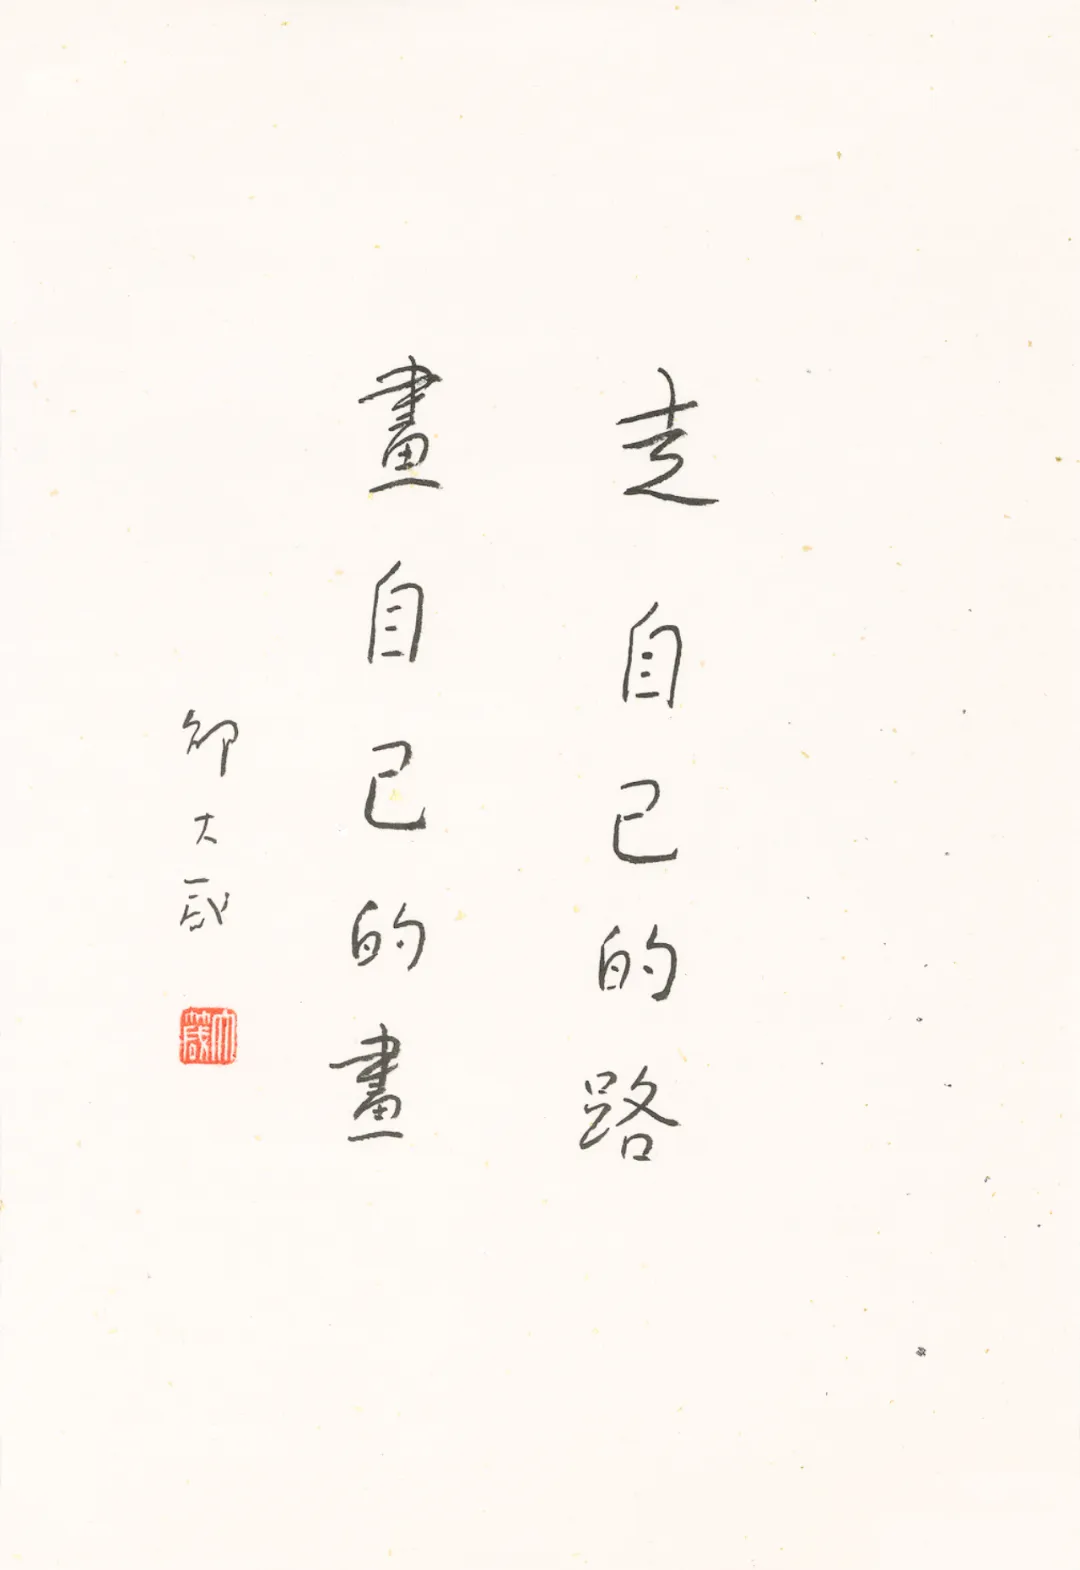 走自己的路
畫自己的畫
邵大箴
大箴